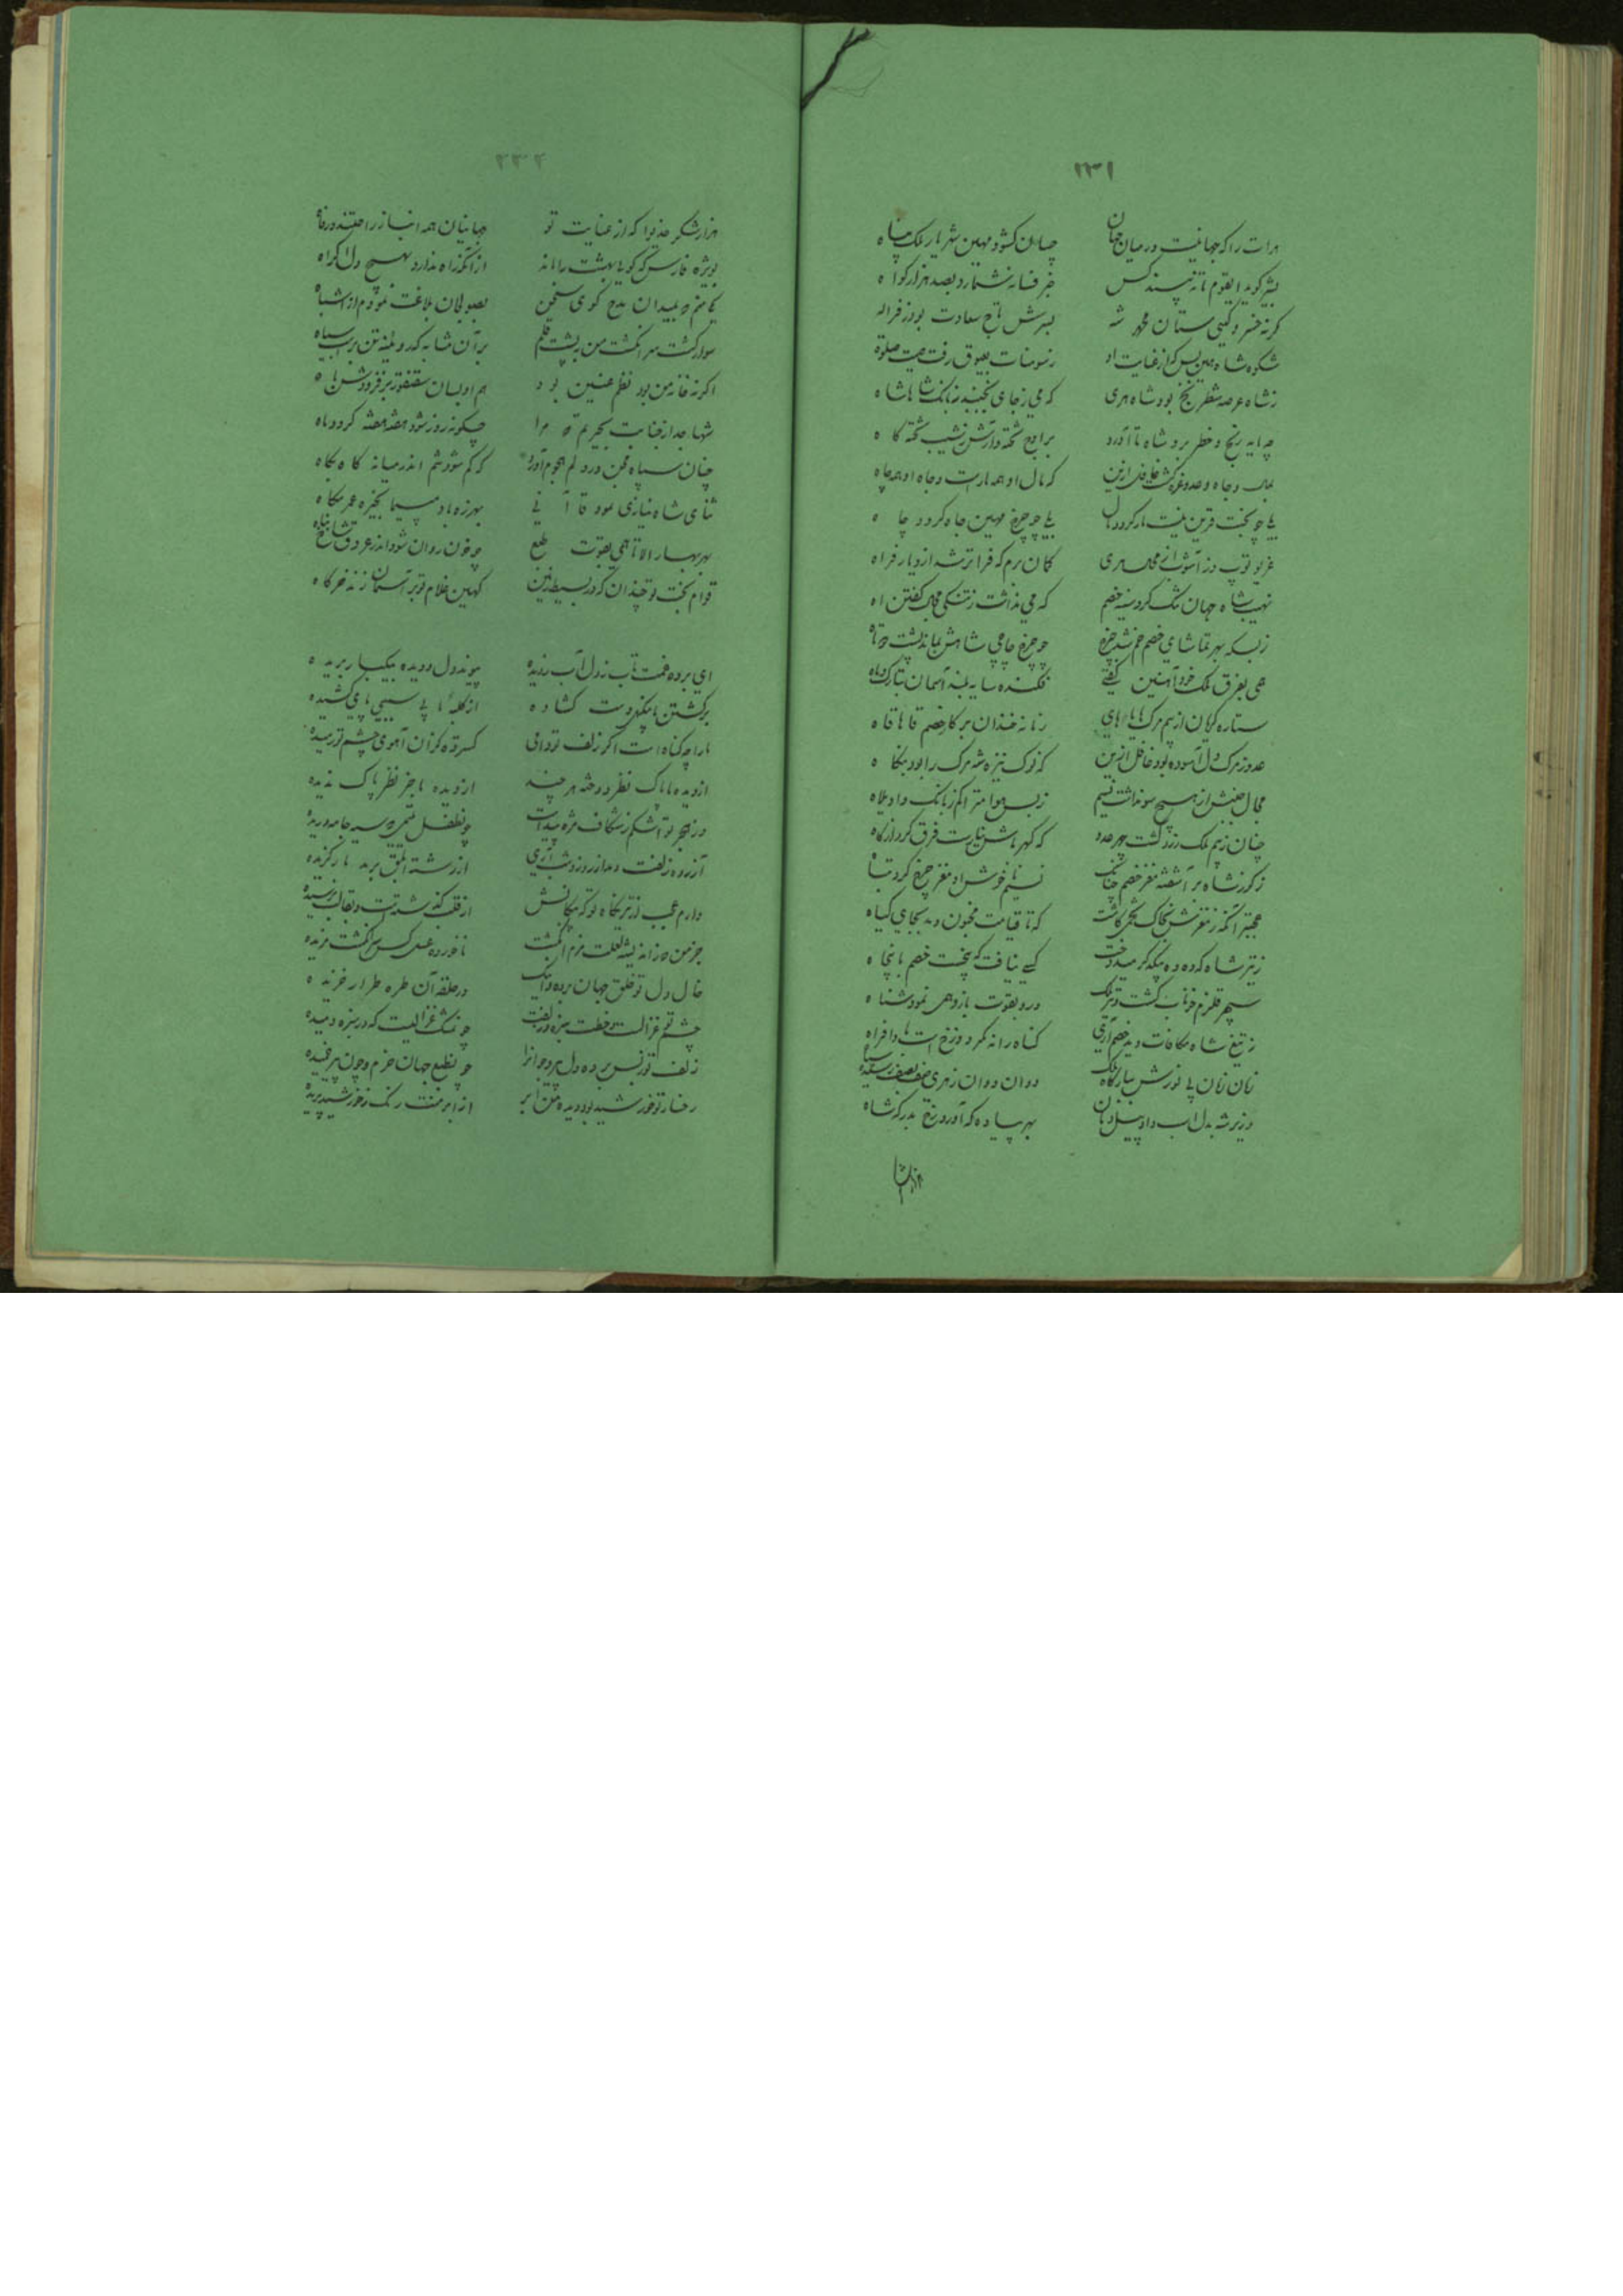 ۲۳۱
هرات را که جهانیست در میان جهان چسان کشود مهین شهریار ملک پناه
بشیر کوید ای قوم تا نپسند کس جز فسانه نشمارد بصد هزار کواه
کرنه خسرو کیتی ستان محمد شه بسرش تاج سعادت بود ز فراله
شکوه شاه مبین پس که از غایت او ز سومنات بعیوق رفت صیت صلوة
ز شاه عرصه شطرنج بود شاه هری که می ز جای نجنبد ز بانک شاها شاه
چرا به رنج و خطر برد شاه تا آورد
بمال و جاه و عدو غره کشت غافل ازین که مال او همه مارست و جاه او همه چاه
یکی چو بخت قرین نیست مار کردد مال یکی چو چرخ مهین جاه کردد چاه
غریو توپ دژ آشوب از محاصری کمان برم که فراتر شد از دیار فراه
نهیب شاه جهان تنک کرد سینه خصم که می نداشت ز تنکی مجال کفتن اه
ز بسکه بهر تماشای خصم خم شد چرخ چو چرخ چاچی شاهش بماند پشت دوتاه
همی بفرق ملک خود آهنین کفتی فکنده سایه بلند آسمان بتارک ماه
ستاره کریان از بیم مرک هایاهای زمانه خندان بر کار خصم قاها قاه
عدو ز مرک دل آسوده بود غافل ازین که نوک نیزه شه مرک را بود بنکاه
مجال جنبش از هیچ سو نداشت نسیم ز بس هوا متراکم ز بانک واویلاه
چنان ز بیم ملک زرد کشت چهر عدو که کهرباش نیارست فرق کرد از کاه
ز کرز شاه بر آشفته مغز خصم چنانک نسیم ناخوش او مغز چرخ کرد تباه
مجتبر آنکه ز مغزش بخاک تخمی کاشت که تا قیامت مجنون دمد بجای کیاه
ز تیر شاه که ده ده بیکدکر میدوخت کسی نیافت که پنجست خصم یا پنجاه
سپهر قلزم خوناب کشت و تیر ملک درو بقوت بازو همی نمود شناه
ز تیغ شاه مکافات دید خصم آری کناه را نه مکر دوزخ است بادافراه
زمان زمان پی پوزش ببارکاه ملک دوان دوان ز هری صف بصف رسید سپاه
وزیر شه بدل اسب داد پیل دمان بهر پیاده که آورد رخ بدرکه شاه
هزار شکر
۲۳۲
هزار شکر خدیوا که از عنایت تو جهانیان همه انباز راحتند و رفاه
بویژه فارس که کویی بهشت را ماند از آنکه راه ندارد بهیچ دل اکراه
که منم به میدان مدح کوی سخن بصولجان بلاغت نمودم از اشباه
سوار کشت سر انکشت من به پشت قلم بر آن مشابه که رویینه تن بر اسب سیاه
اکر نه خامه من بود نظم عنین بود هم او بسان سقنقور بر فزودش باه
شها جدا ز جنابت بحیرتم که مرا چکونه روز شود هفته هفته کردد ماه
چنان سپاه محن در دلم هجوم آورد که کم شود شم اندر میانه کاه بکاه
ثنای شاه نیازی نمود قاآنی بهرزه باد مپیما بخیره عمر مکاه
بهر بهار الا تا همی بقوت طبع چو خون روان شود اندر عروق شاخ میاه
قوام بخت تو چندان که در بسیط زمین کهین غلام تو بر آسمان زند خرکاه
ای برده غمت تاب ز دل آب ز دیده پیوند دل و دیده بیکبار بریده
برکشتن ما پنکهی دست کشاده از کلبه ما بی سببی پای کشیده
ما را چه کناه است اکر زلف تو دامی کسترده کز آن آهوی چشم تو رمیده
از دیده ناپاک نظر دوخته هر چند از دیده ما جز نظر پاک ندیده
در هجر تو اشکم ز شکاف مژه پیداست چون طفل یتیمی که سیه جامه دریده
آزرده زلفت دمد از روز و شب آری از رشته ابلق برمد مار کزیده
دارم عجب از تیر نکاه تو که پیکانش از قلب کذشته است و بقالب نرسیده
جز من که ز اندیشه لعلت مزم انکشت ناخورده عسل کس سر انکشت مزیده
خال دل تو خلق جهان برده و اینک در حلقه آن طره طرار خزیده
چشم تو غزالست و خطت سبزه و زلفت چو مشک غزالیست که در سبزه دمیده
زلف تو ز بس برده دل پیر و جوانرا چو نطع جهان خرم و چون پیر خمیده
رخسار تو خورشید بود دیده من ابر از ابر منت رنک ز خورشید پریده